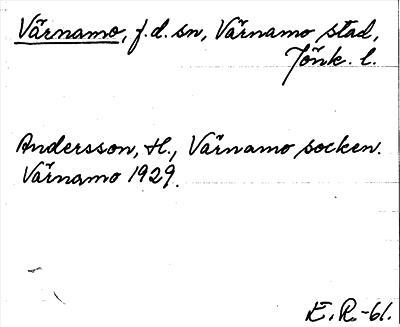 Värnamo, f.d. sn, Värnamo stad,
Jönk. l.
Andersson, H., Värnamo socken.
Värnamo 1929.
E. R.-61.